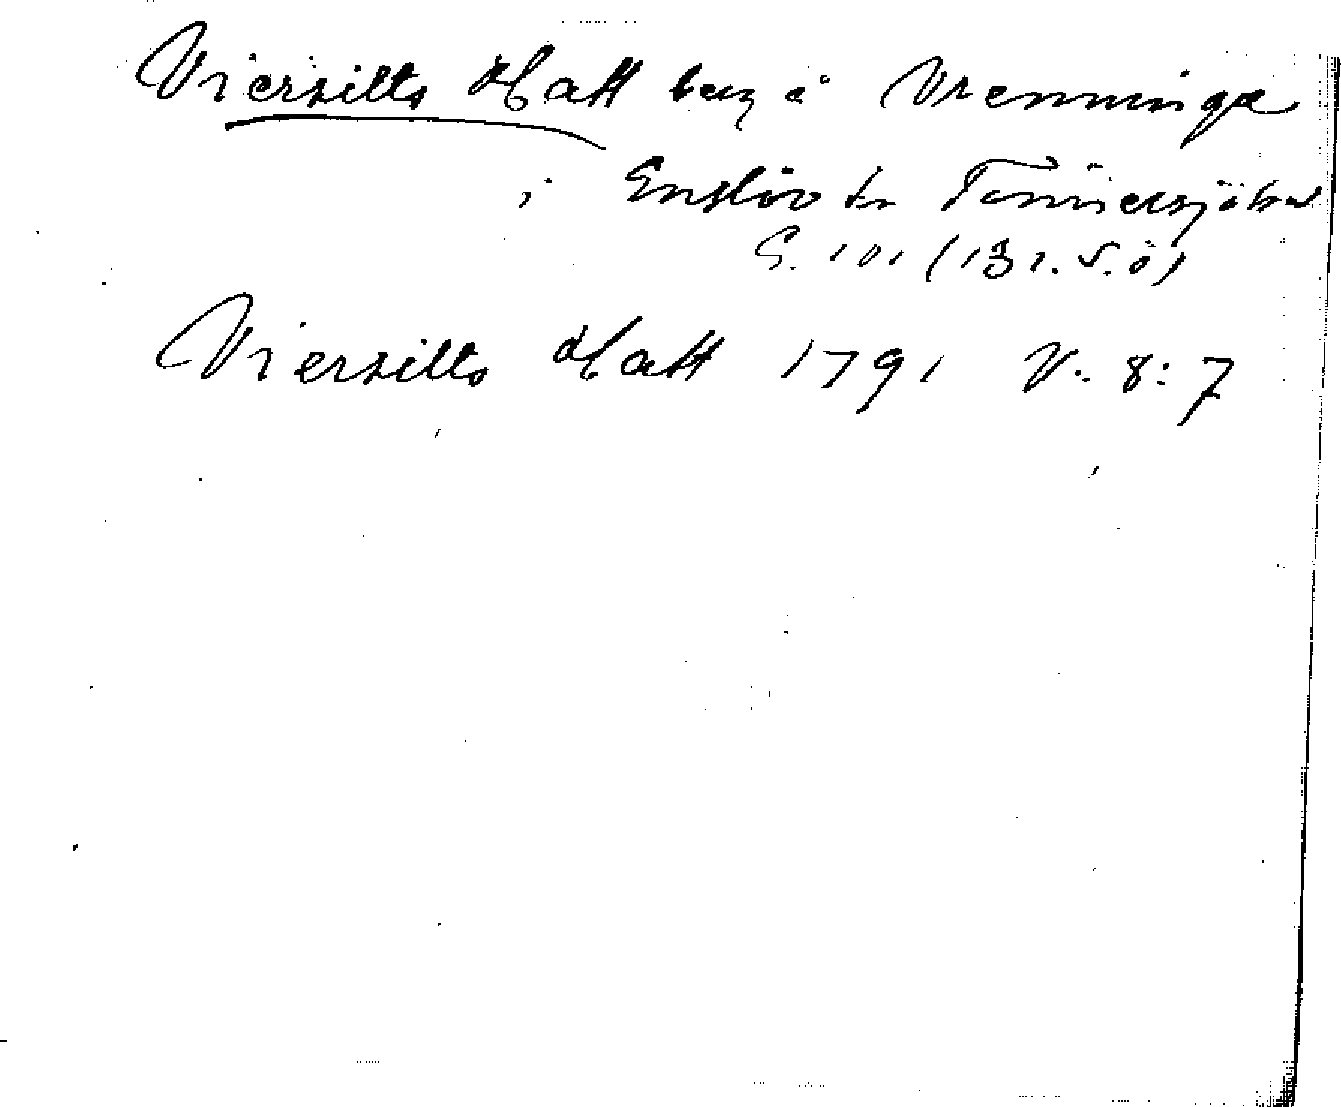 Viersilts Hatt berg å Vrenninge
i Enslöv tr Tönnersjö hd
G. 101 (131. S. Ö)
Viersilts Hatt 1791 V. 8:7